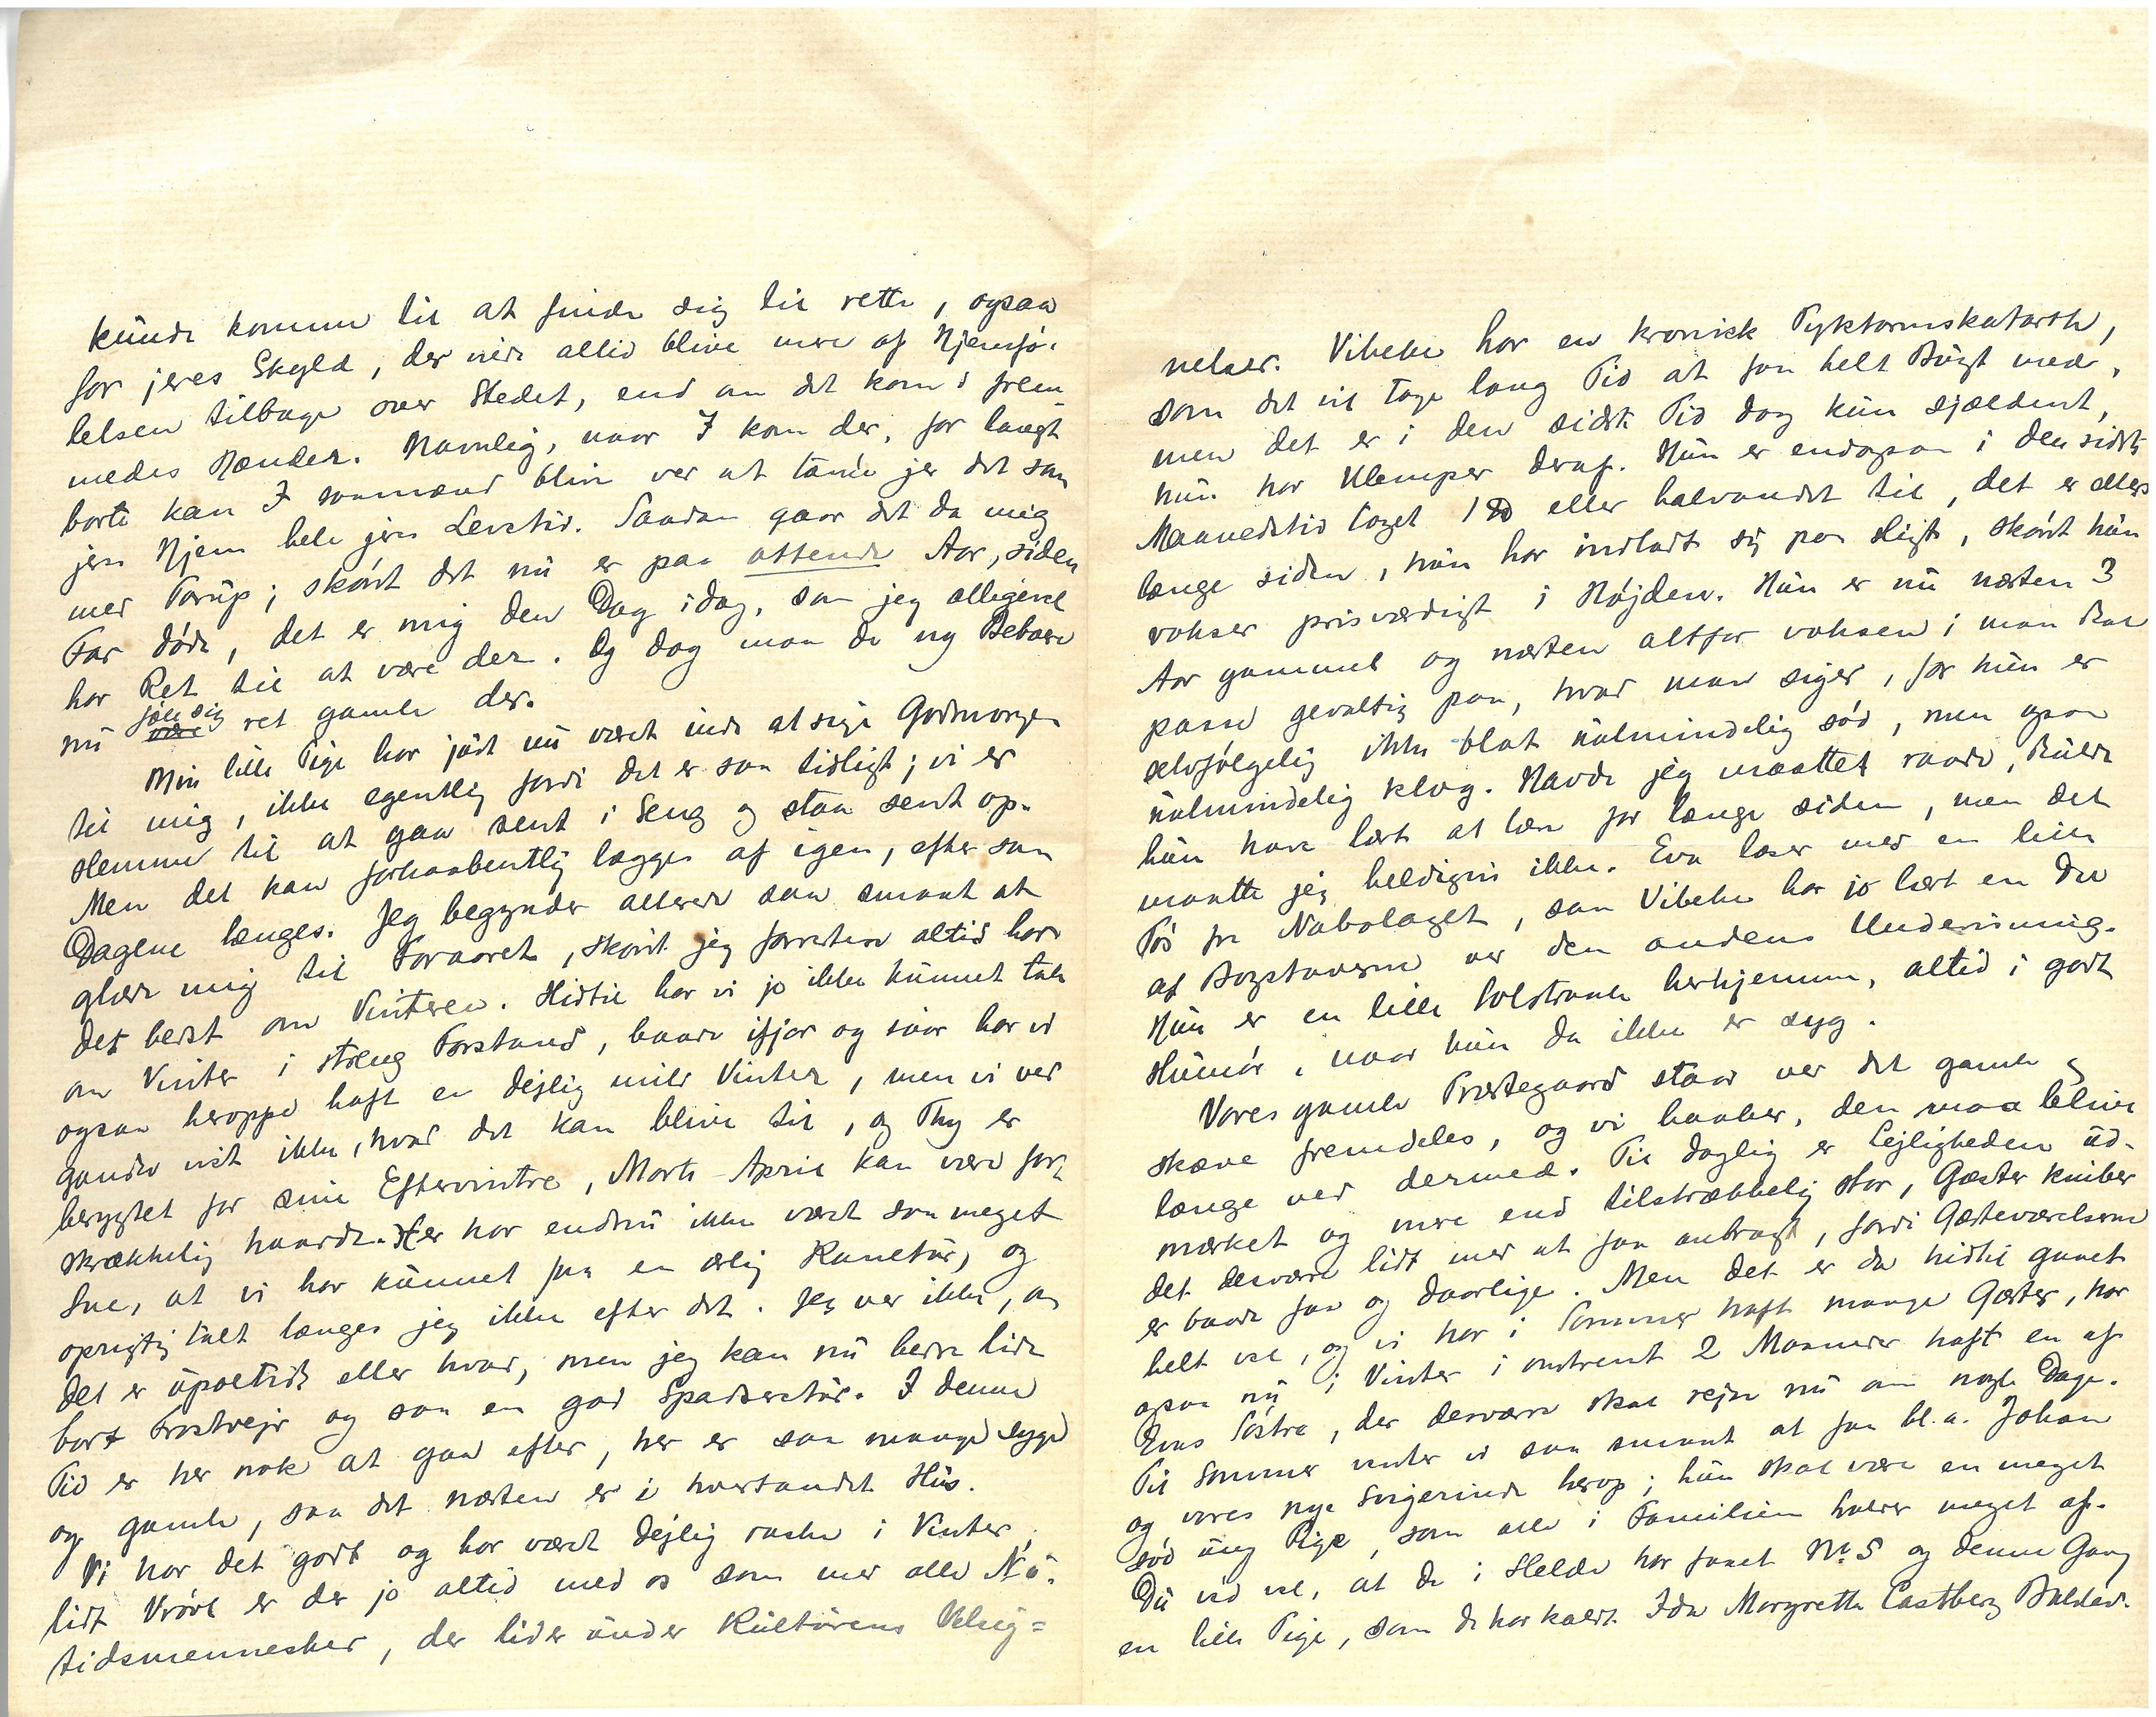 kunde komme til at finde sig til rette, ogsaa
for jeres Skyld, der vilde altid blive mere af Hjemfø-
lelsen tilbage over Stedet, end om det kom i frem-
medes Hænder. Navnlig, naar I kom der, for langt
borte kan I saamænd blive ved at tænke jer det som
jeres Hjem hele jeres Levetid. Saadan gaar det da mig
med Torup; skønt det nu er paa ottende Aar, siden
Far døde, det er mig den Dag idag, som jeg alligevel
har Ret til at være der. Og dog maa de ny Beboere
nu føle sig ret gamle der.
Min lille Pige har jødt nu været inde at sige Godmorgen
til mig, ikke egentlig fordi det er saa tidligt; vi er
slemme til at gaa sent i Seng og staa sent op.
Men det kan forhaabentlig lægges af igen, efter som
Dagene længes. Jeg begynder allerede saa smaat at
glæde mig til Foraaret, skønt jeg forresten altid har
det bedst om Vinteren. Hidtil har vi jo ikke kunnet tale
om Vinter i streng Forstand, baade ifjor og iaar har vi
ogsaa heroppe haft en dejlig mild Vinter, men vi ved
ganske vist ikke, hvad det kan blive til, og Thy er
berygtet for sine Eftervintre, Marts-April kan være for-
skrækkelig haarde. Her har endnu ikke været saa meget
Sne, at vi har kunnet faa en ærlig Kanetur, og
oprigtig talt længes jeg ikke efter det. Jeg ved ikke, om
det er upoetisk eller hvad, men jeg kan nu bedre lide
bart Frostvejr og saa en god Spadseretur. I denne
Tid er her nok at gaa efter, her er saa mange syge
og gamle, saa det næsten er i hvertandet Hus.
Vi har det godt og har været dejlig raske i Vinter,
lidt Vrøvl er der jo altid med os som med alle Nu-
tidsmennesker, der lider under Kulturens Velsig=
nelser. Vibeke har en kronisk Tyktarmskatarrh,
som det vil tage lang Tid at faa helt Bugt med,
men det er i den sidste Tid dog kun sjældent,
hun har Ulemper deraf. Hun er endogsaa i den sidste
Maanedstid taget 1 ℔ eller halvandet til, det er ellers
længe siden, hun har indladt sig paa sligt, skønt hun
vokser prisværdigt i Højden. Hun er nu næsten 3
Aar gammel og næsten altfor voksen; man skal
passe gevaltig paa, hvad man siger, for hun er
selvfølgelig ikke blot ualmindelig sød, men ogsaa
ualmindelig klog. Havde jeg maattet raade, skulde
hun have lært at læse for længe siden, men det
maatte jeg heldigvis ikke. Eva læser med en lille
Tøs fra Nabolaget, saa Vibeke har jo lært en Del
af Bogstaverne ved den andens Undervisning.
Hun er en lille Solstraale herhjemme, altid i godt
Humør, naar hun da ikke er syg.
Vores gamle Præstegaard staar ved det gamle og
skæve fremdeles, og vi haaber, den maa blive
længe ved dermed. Til daglig er Lejligheden ud-
mærket og mere end tilstrækkelig stor, Gæster kniber
det desværre lidt med at faa anbragt, fordi Gæsteværelserne
er baade faa og daarlige. Men det er da hidtil gaaet
helt vel, og vi har i Sommer haft mange Gæster, har
ogsaa nu i Vinter i omtrent 2 Maaneder haft en af
Evas Søstre, der desværre skal rejse nu om nogle Dage.
Til Sommer venter vi saa smaat at faa bl.a. Johan
og vores nye Svigerinde herop; hun skal være en meget
sød ung Pige, som alle i Familien holder meget af.
Du ved vel, at de i Helde har faaet No 5 og denne Gang
en lille Pige, som de har kaldt Ida Margrethe Castberg